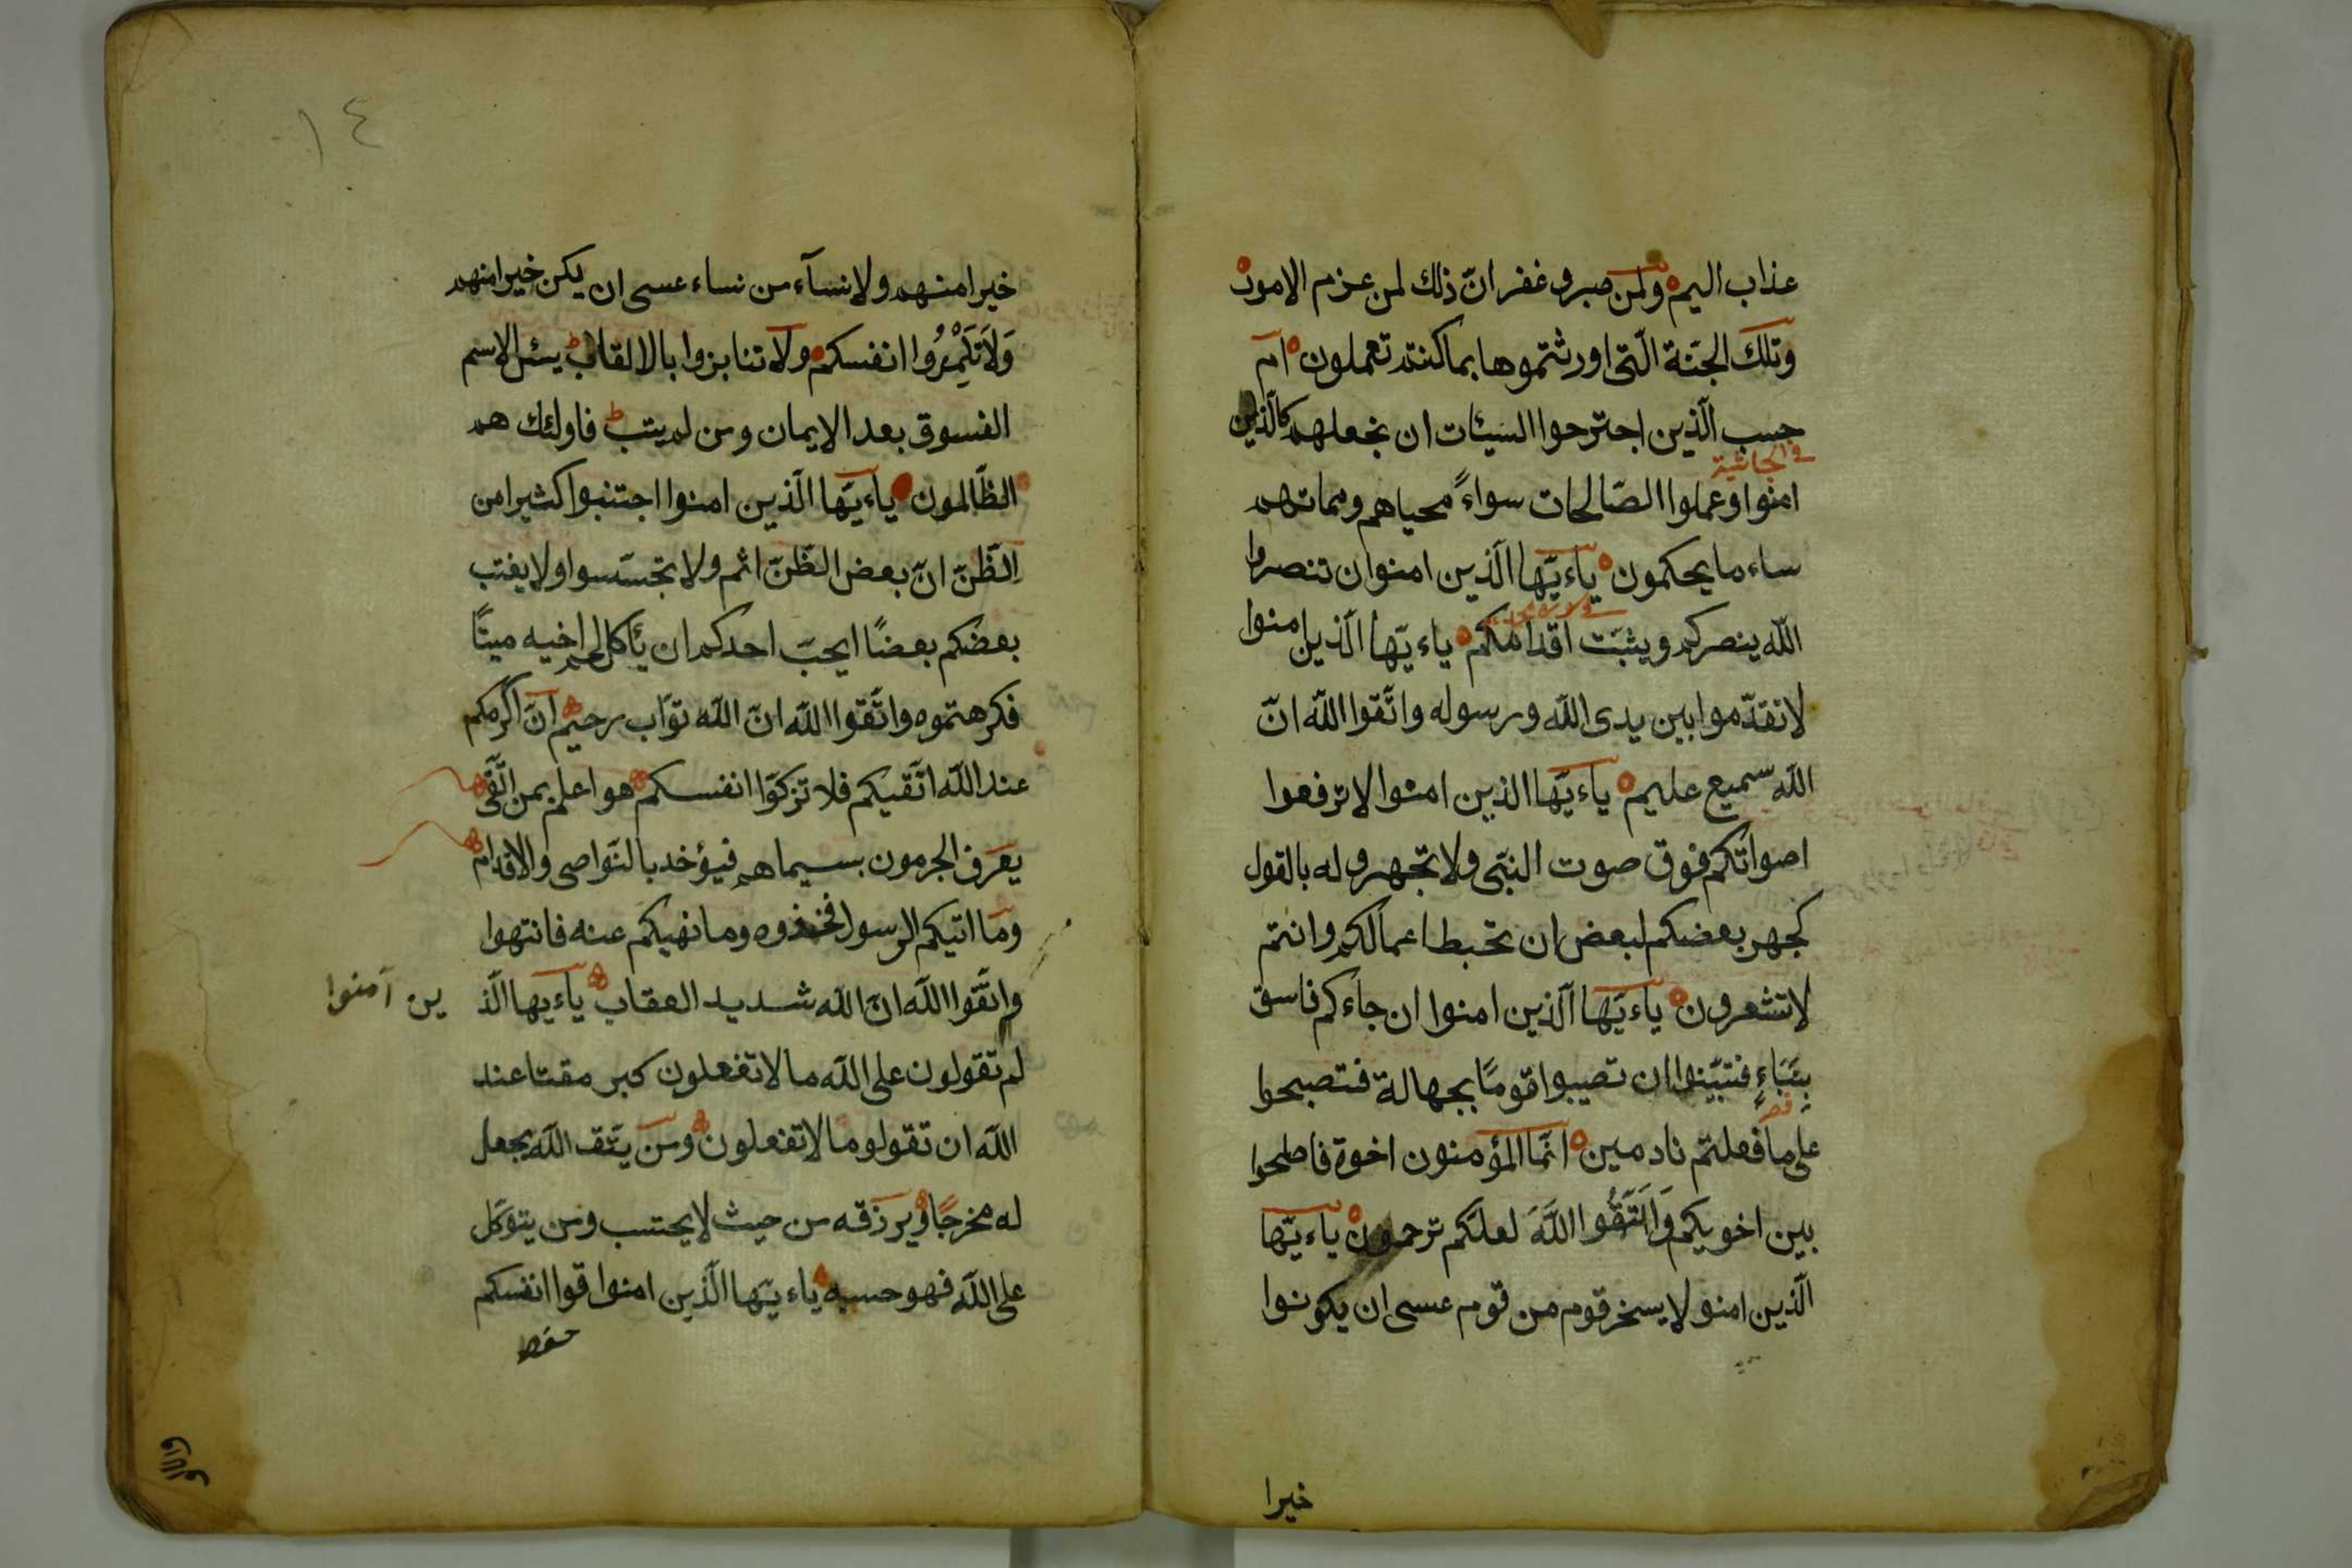 عذاب اليم ولمن صبر و غفر انّ ذلك لمن عزم الامور
وتلك الجنّة الّتى اورثتموها بما كنتم تعملون ام
حسب الّذين اجترحوا السيئات ان نجعلهم كالّذين
فى الجاثية
امنوا وعملوا الصّالحات سواءً محياهم ومماتهم
ساء ما يحكمون ياءيّها الّذين امنوا ان تنصروا
الله ينصركم ويثبّت اقدامكم ياءيّها الّذين امنوا
لا تقدّموا بين يدى الله ورسوله واتّقوا الله انّ
الله سميع عليم ياءيّها الذين امنوا لا ترفعوا
اصواتكم فوق صوت النبّى ولا تجهروا له بالقول
كجهر بعضكم لبعض ان تحبط اعمالكم وانتم
لا تشعرون ياءيّها الّذين امنوا ان جاءكم فاسق
بِنَبَاءٍ فتبيّنوا ان تصيبوا قومًا بجهالة فتصبحوا
على ما فعلتم نادمين انّما المؤمنون اخوة فاصلحوا
بين اخويكم وَاتَّقُوا اللَّهَ لعلّكم ترحمون ياءيّها
الّذين امنو لا يسخر قوم من قوم عسى ان يكونوا
خيرا
١٤
خيرا منهم ولا نسآء من نساء عسى ان يكن خيرا منهم
وَلَا تَلْمِزُوا انفسكم ولا تنابزوا بالالقاب بئس الاسم
الفسوق بعد الايمان ومن لم يتب فاولئك هم
الظّالمون ياءيّها الّذين امنوا اجتنبوا كثيرا من
الظّنّ انّ بعض الظّنّ اثم ولا تجسّسوا ولا يغتب
بعضكم بعضًا ايحبّ احدكم ان يأكل لحم اخيه ميتًا
فكرهتموه واتّقوا الله انّ الله توّاب رحيم انّ اكرمكم
عند الله اتّقيكم فلا تزكّوا انفسكم هو اعلم بمن اتّقى
يعرف المجرمون بسيماهم فيؤخد بالنّواصى والاقدام
وما اتيكم الرسول فخذوه وما نهيكم عنه فانتهوا
واتّقوا الله انّ الله شديد العقاب ياءيها الّذ ين آمنوا
لم تقولون على الله ما لا تفعلون كبر مقتا عند
الله ان تقولو ما لا تفعلون ومن يتّق الله يجعل
له مخرجًا ويرزقه من حيث لا يحتسب ومن يتوكّل
على الله فهو حسبه ياءيّها الّذين امنوا قوا انفسكم